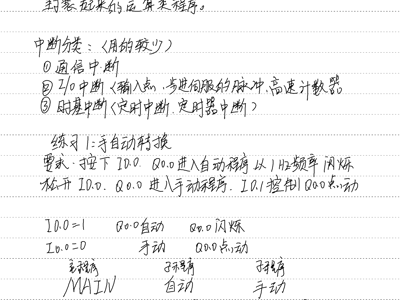 封装起来的运算类程序。
中断分类：（用的较少）
①通信中断
②I/O中断（输入点、步进伺服的脉冲，高速计数器
③时基中断（定时中断、定时器中断）
练习1：手自动转换
要求：按下I0.0，Q0.0进入自动程序以1Hz频率闪烁
松开I0.0，Q0.0进入手动程序，I0.1控制Q0.0点动
I0.0=1 Q0.0自动 Q0.0闪烁
I0.0=0 手动 Q0.0点动
主程序 子程序 子程序
MAIN 自动 手动